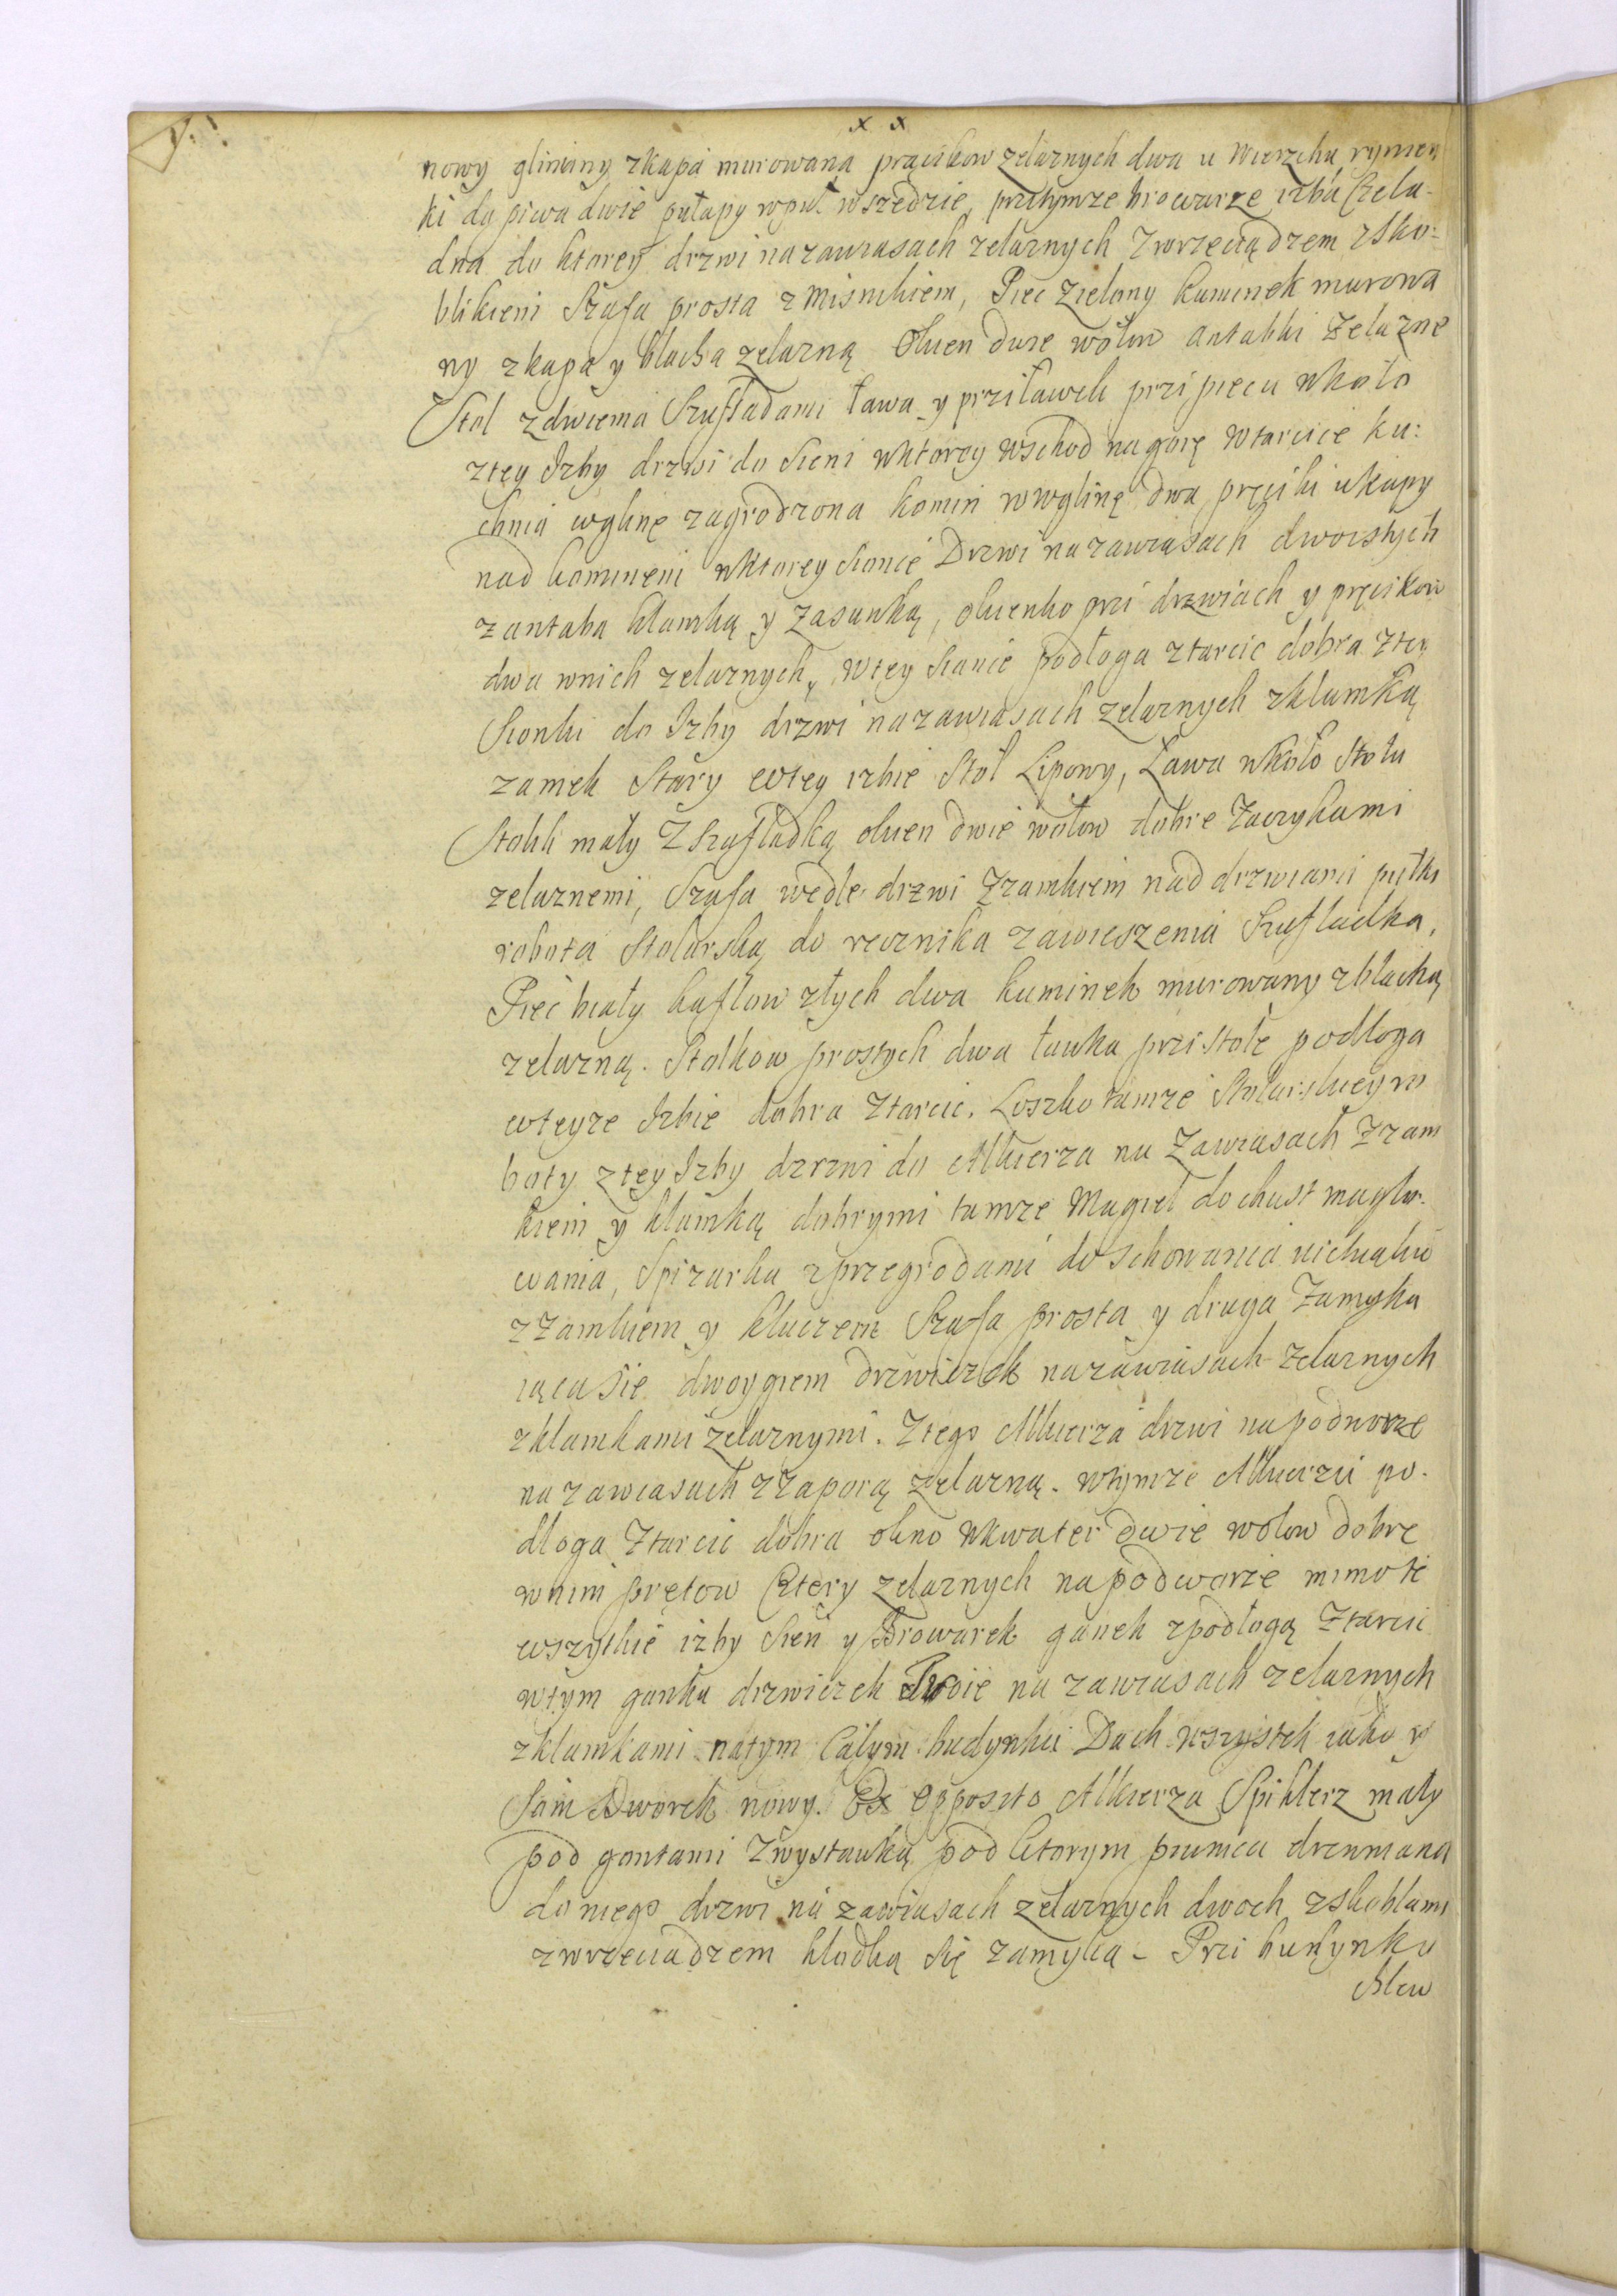 x x
nowy gliniany zkapą murowaną pręcikow zelaznych dwa u Wierzchu rynien
ki do piwa dwie pułapy wpuł wszędzie, przytymze browarze izba Czela-
dna do ktorey drzwi nazawiasach zelaznych Zwrzeciądzem zsko-
blikiem Szafa prosta z Misnikiem, Piec Zielony kuminek murowa
ny zkapą y blachą zelazną Okien dwie wołow antabki Zelazne
Stol zdwiema Szufladami ława y przyławek przi piecu wkoło
ztey Izby drzwi do Sieni wktorey wschod nagorę wtarcice ku:
chnia wglinę zagrodzona komin wwglinę dwa pręciki ukapy
nad kominem wktorey Sionce Drzwi nazawiasach dwoistych
zantabą klamką y Zasuwką, okienko przi drzwiach y pręcikow
dwa wnich zelaznych, Wtey Sionce podłoga ztarcic dobra ztey
Sionki do Izby drzwi nazawiasach zelaznych zklamką
zamek Stary wtey izbie Stoł Lipowy, Ława wkoło Stołu
Stolik mały ZSzufladką okien dwie wołow dobre Zaczykami
zelaznemi, Szafa wedle drzwi Zzamkiem nad drzwiami pułki
robota Stolarska do ręcznika zawieszenia Szufladka,
Piec biały kaflow złych dwa kuminek murowany zblachą
zelazną. Stolkow prostych dwa ławka przi Stole podłoga
wteyze Izbie dobra Ztarcic. Loszko tamze Stolarskieyro
boty ztey Izby drzwi do Alkierza na Zawiasach Zzam
kiem y klamką dobrymi tamze Magiel do chust maglo-
wania, Spizarka zprzegrodami do Schowania
zZamkiem y kluczem Szafa prosta y druga Zamyka
iąca Sie dwoygiem drzwiczek nazawiasach Zelaznych
zklamkami zelaznymi. Ztego Alkierza drzwi napodworze
na zawiasach zZaporą zelazną. Wtymze Alkierzu po-
dłoga Ztarcic dobra okno wkwater dwie wołow dobre
wnim prętow Cztery zelaznych napodworze mimo te
wszytkie izby Sień y Browarek ganek zpodłogą Ztarcic
wtym ganku drzwiczek Dwie na zawiasach zelaznych
zklamkami natym Całym budynku Dach wszystek iako y
Sam Dworek nowy. Ex Opposito Alkierza Spiklerz mały
pod gontami Zwystawką pod ktorym piwnica drzewniana
do niego drzwi na zawiasach zelaznych dwoch zskoblami
zwrzeciadzem klodką się zamyka - Przi budynku
chlew